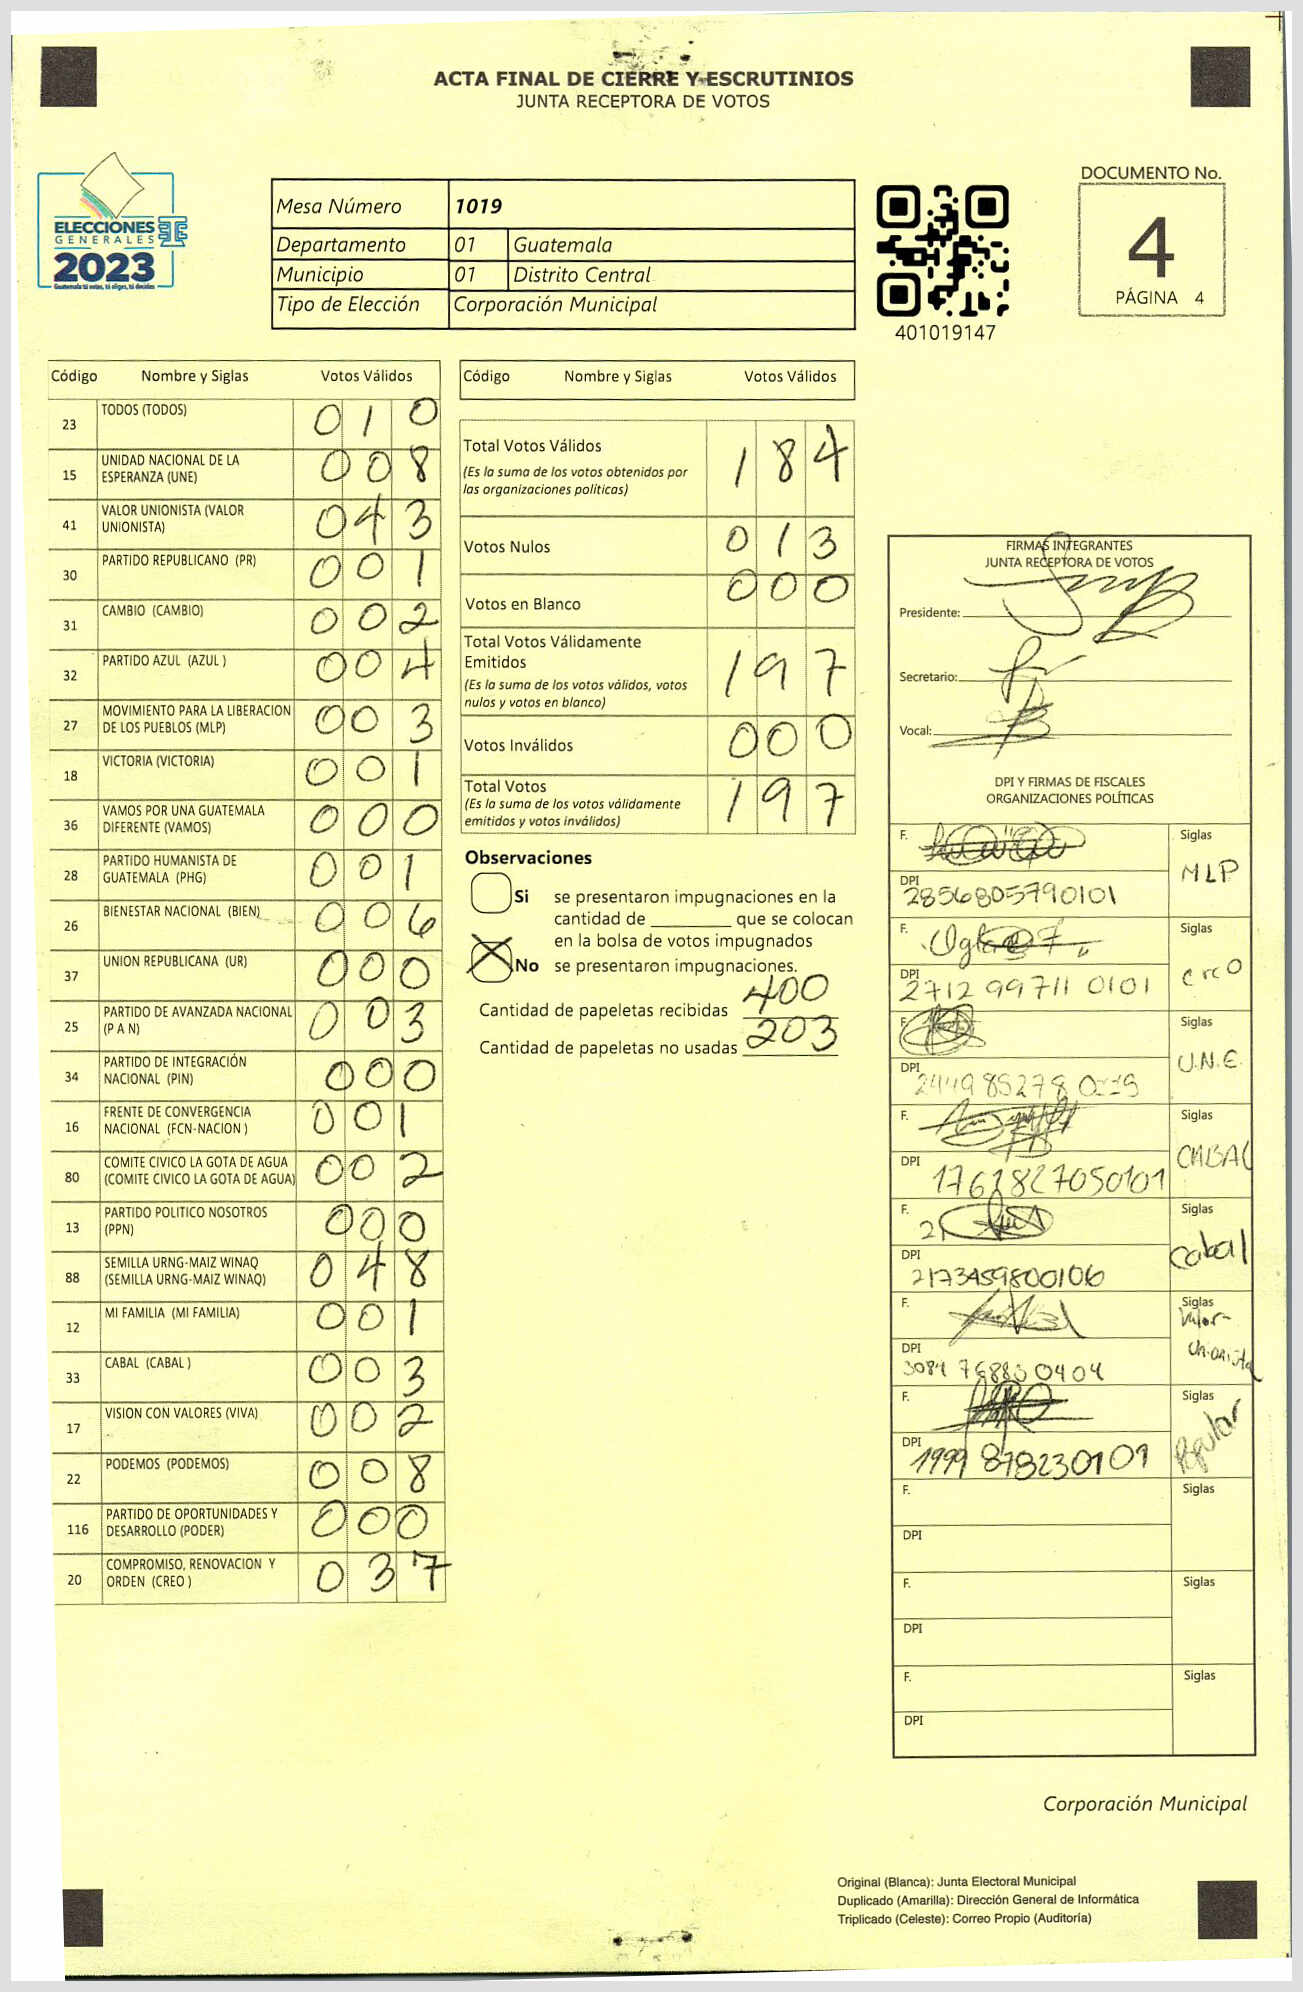 ACTA FINAL DE CIERRE Y ESCRUTINIOS
JUNTA RECEPTORA DE VOTOS
ELECCIONES
GENERALES
2023
Guatemala tú votas, tú eliges, tú decides
Mesa Número 1019
Departamento 01 Guatemala
Municipio 01 Distrito Central
Tipo de Elección Corporación Municipal
401019147
DOCUMENTO No.
4
PÁGINA 4
Código Nombre y Siglas Votos Válidos
23 TODOS (TODOS) 0 1 0
15 UNIDAD NACIONAL DE LA
ESPERANZA (UNE) 0 0 8
41 VALOR UNIONISTA (VALOR
UNIONISTA) 0 4 3
30 PARTIDO REPUBLICANO (PR) 0 0 1
31 CAMBIO (CAMBIO) 0 0 2
32 PARTIDO AZUL (AZUL ) 0 0 4
27 MOVIMIENTO PARA LA LIBERACION
DE LOS PUEBLOS (MLP) 0 0 3
18 VICTORIA (VICTORIA) 0 0 1
36 VAMOS POR UNA GUATEMALA
DIFERENTE (VAMOS) 0 0 0
28 PARTIDO HUMANISTA DE
GUATEMALA (PHG) 0 0 1
26 BIENESTAR NACIONAL (BIEN) 0 0 6
37 UNION REPUBLICANA (UR) 0 0 0
25 PARTIDO DE AVANZADA NACIONAL
(P A N) 0 0 3
34 PARTIDO DE INTEGRACIÓN
NACIONAL (PIN) 0 0 0
16 FRENTE DE CONVERGENCIA
NACIONAL (FCN-NACION ) 0 0 1
80 COMITE CIVICO LA GOTA DE AGUA
(COMITE CIVICO LA GOTA DE AGUA) 0 0 2
13 PARTIDO POLITICO NOSOTROS
(PPN) 0 0 0
88 SEMILLA URNG-MAIZ WINAQ
(SEMILLA URNG-MAIZ WINAQ) 0 4 8
12 MI FAMILIA (MI FAMILIA) 0 0 1
33 CABAL (CABAL ) 0 0 3
17 VISION CON VALORES (VIVA) 0 0 2
22 PODEMOS (PODEMOS) 0 0 8
116 PARTIDO DE OPORTUNIDADES Y
DESARROLLO (PODER) 0 0 0
20 COMPROMISO, RENOVACION Y
ORDEN (CREO ) 0 3 7
Código Nombre y Siglas Votos Válidos
Total Votos Válidos 1 8 4
(Es la suma de los votos obtenidos por
las organizaciones políticas)
Votos Nulos 0 1 3
Votos en Blanco 0 0 0
Total Votos Válidamente
Emitidos 1 9 7
(Es la suma de los votos válidos, votos
nulos y votos en blanco)
Votos Inválidos 0 0 0
Total Votos 1 9 7
(Es la suma de los votos válidamente
emitidos y votos inválidos)
Observaciones
Si se presentaron impugnaciones en la
cantidad de ________ que se colocan
en la bolsa de votos impugnados
No se presentaron impugnaciones.
Cantidad de papeletas recibidas 400
Cantidad de papeletas no usadas 203
FIRMAS INTEGRANTES
JUNTA RECEPTORA DE VOTOS
Presidente:
Secretario:
Vocal:
DPI Y FIRMAS DE FISCALES
ORGANIZACIONES POLÍTICAS
F. Siglas
MLP
DPI
2856805790101
F. Siglas
creo
DPI
2712 99711 0101
F. Siglas
U.N.E.
DPI
F. Siglas
CABAL
DPI
1762827050101
F. Siglas
Cabal
DPI
2173459800106
F. Siglas
Valor-
Unionista
DPI
3084 76880 0404
F. Siglas
DPI
1999 878230101
F. Siglas
DPI
F. Siglas
DPI
F. Siglas
DPI
Corporación Municipal
Original (Blanca): Junta Electoral Municipal
Duplicado (Amarilla): Dirección General de Informática
Triplicado (Celeste): Correo Propio (Auditoría)